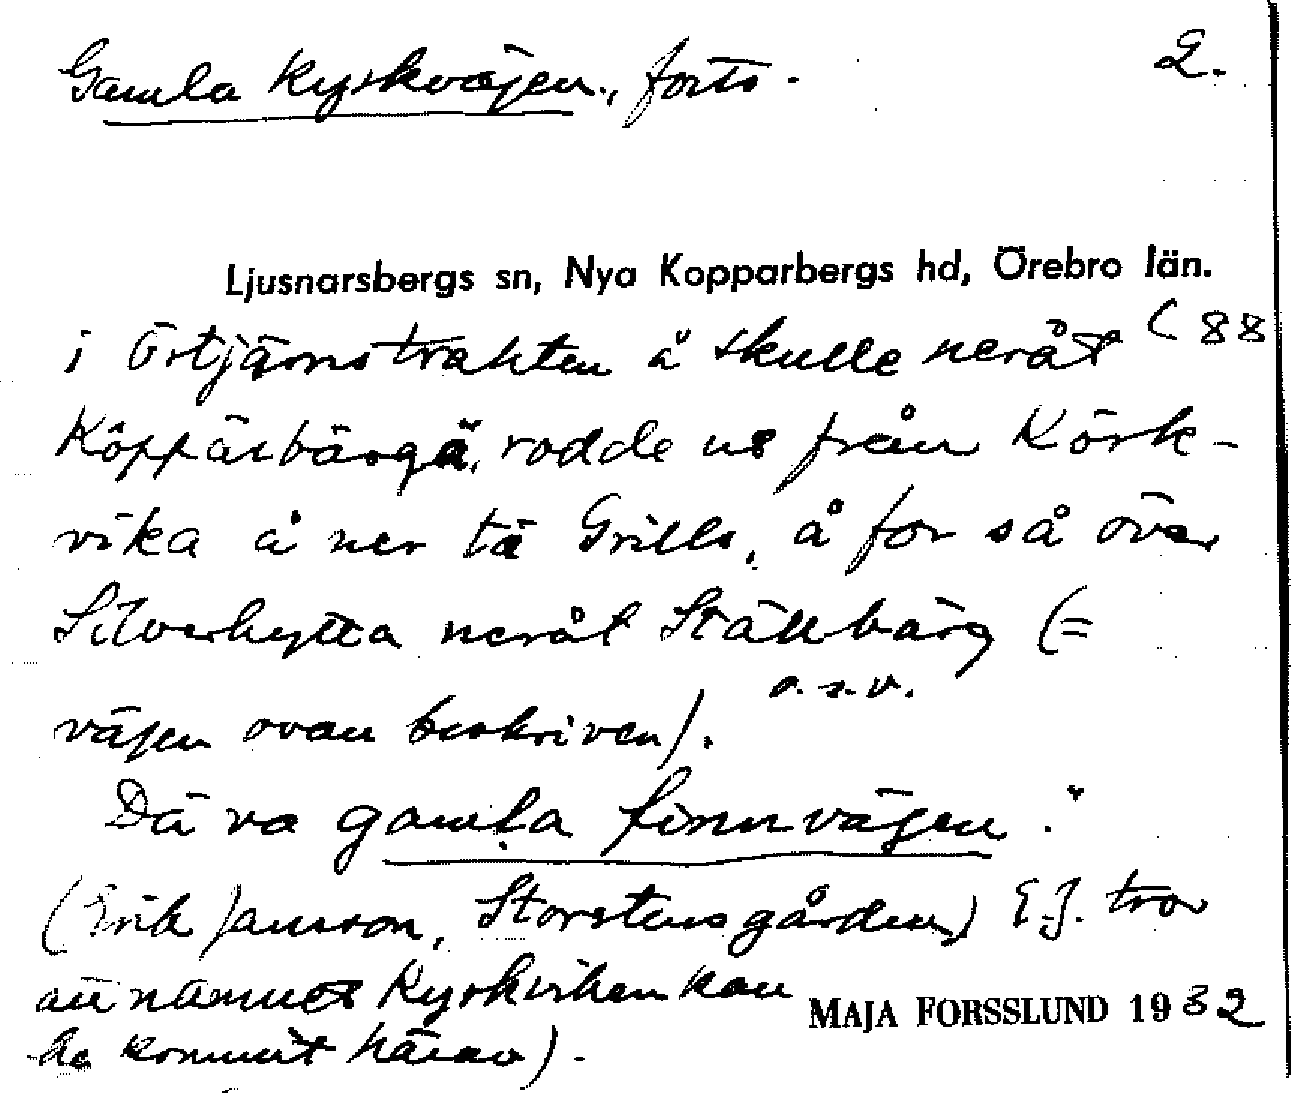 Gamla Kyrkvägen, forts. 2.
Ljusnarsbergs sn, Nya Kopparbergs hd, Örebro län.
i Örtjärnstrakten å skulle neråt (88
Köppärbärgä, rodde ne från Körk-
vika å ner tä Grills, å for så över
Silverhytta neråt Ställbärg (=
vägen ovan beskriven). o.s.v.
Dä va gamla finnvägen."
(Erik Jansson, Storstensgården) E.J. tror
att namnet Kyrkviken kan
ha kommit härav).
MAJA FORSSLUND 1932